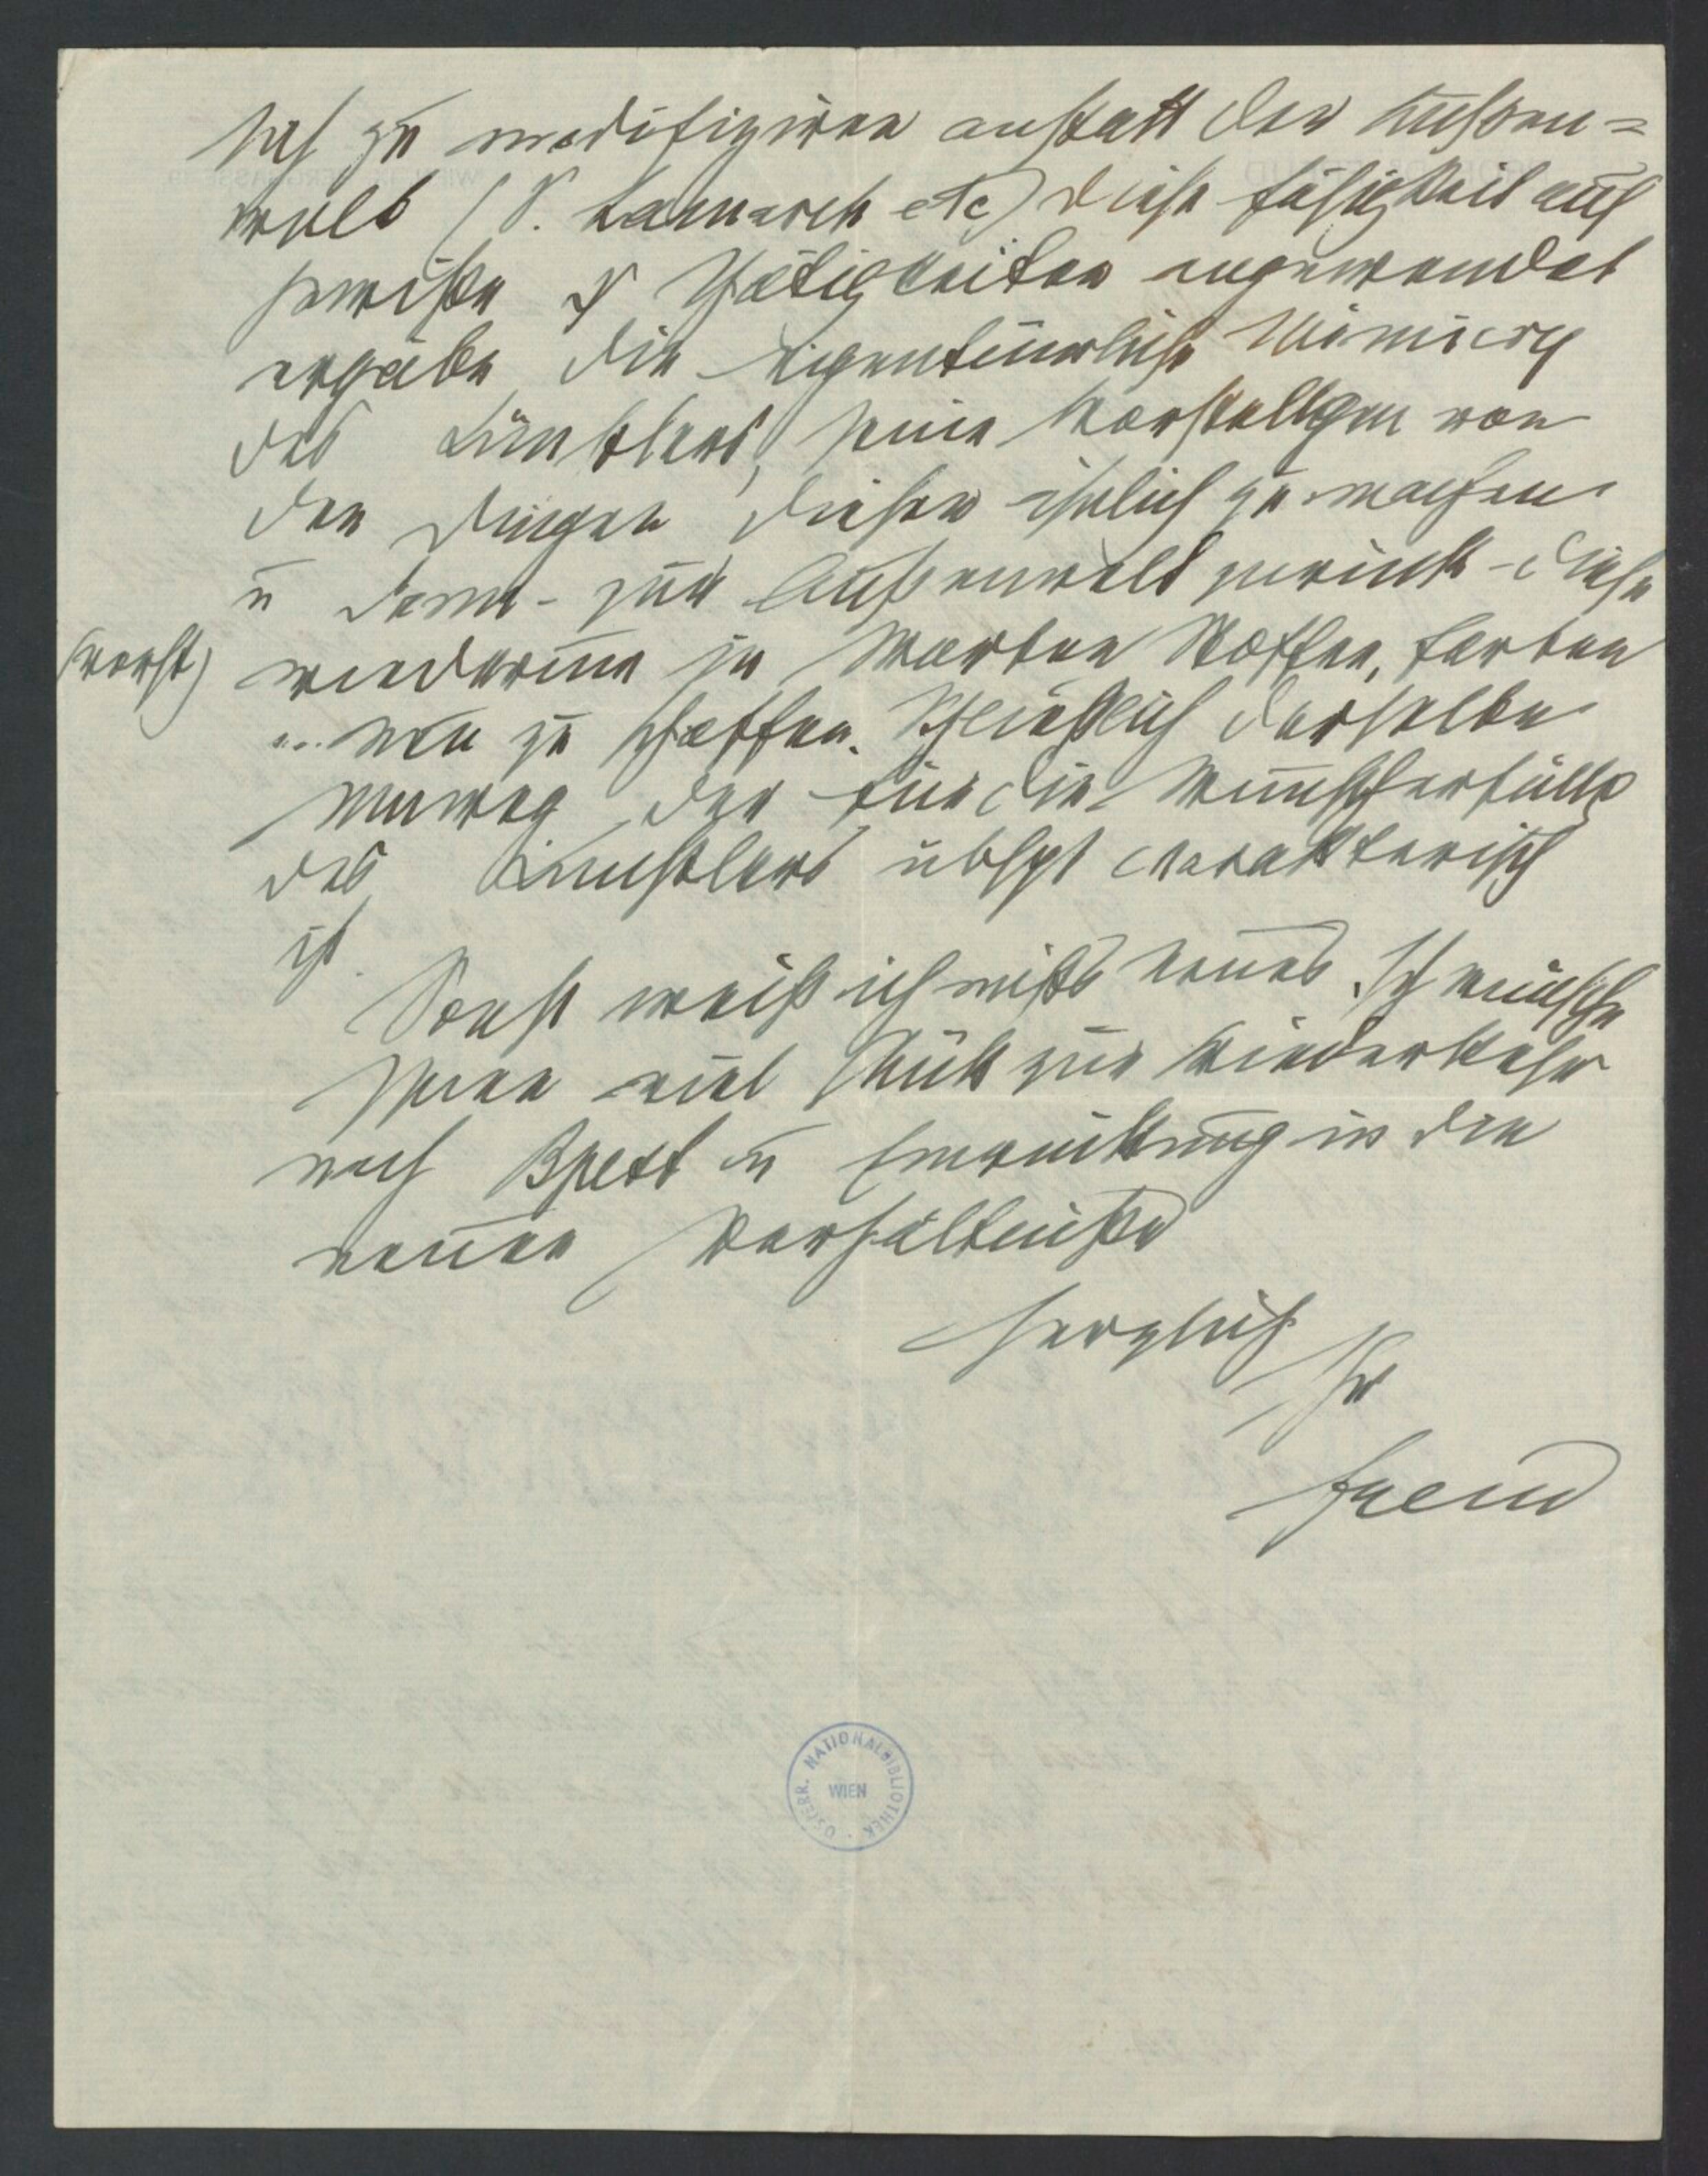 sich zu modifiziren anstatt der Außen=
welt (S. Lamarck etc) Diese Fähigkeit auf
gewisse ψ Thätigkeiten angewendet
ergäbe die eigentümliche Mimicry
des Künstlers, seine Vorstellgen von
den Dingen diesen ähnlich zu machen
u dann - zur Außenwelt zurück - diese
(Vorst) wiederum in Worten Stoffen, Farben
aus zu schaffen. Schließlich derselbe
Umweg, der für die Wunscherfüllg
des Künstlers übhpt charakteristisch
ist.
Sonst weiß ich nichts Neues. Ich wünsche
Ihnen viel Glück zur Wiederkehr
nach Bpest u Einrückung in die
neuen Verhältniße
Herzlich
Ihr
Freud
ÖSTERR. NATIONALBIBLIOTHEK
WIEN